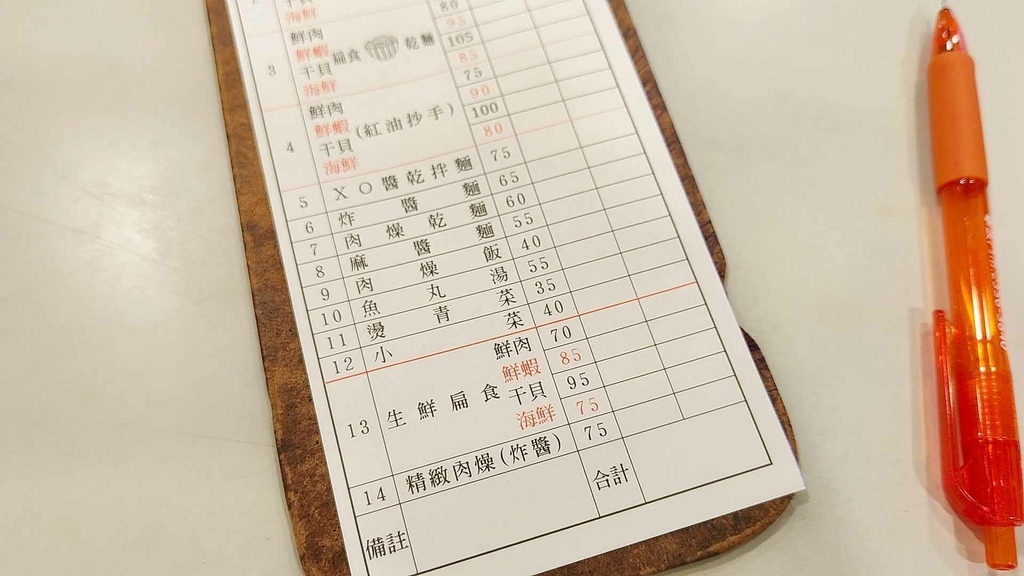 海鮮
3 鮮肉 80
鮮蝦 95
扁食 乾麵
干貝 105
海鮮 85
4 鮮肉 75
鮮蝦 90
(紅油抄手)
干貝 100
海鮮 80
5 XO醬乾拌麵 75
6 炸醬麵 65
7 肉燥乾麵 60
8 麻醬麵 55
9 肉燥飯 40
10 魚丸湯 55
11 燙青菜 35
12 小菜 40
13 生鮮扁食 鮮肉 70
鮮蝦 85
干貝 95
海鮮 75
14 精緻肉燥(炸醬) 75
備註 合計